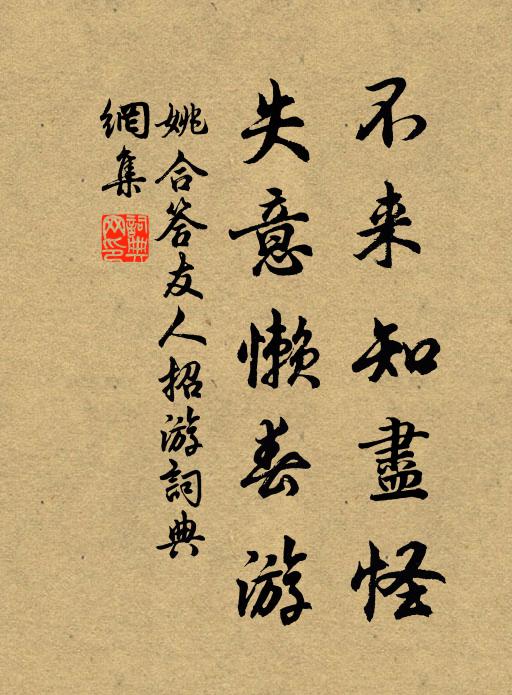 不来知盡怪
失意懶春游
姚合答友人招游詞典
網集
詞典網印